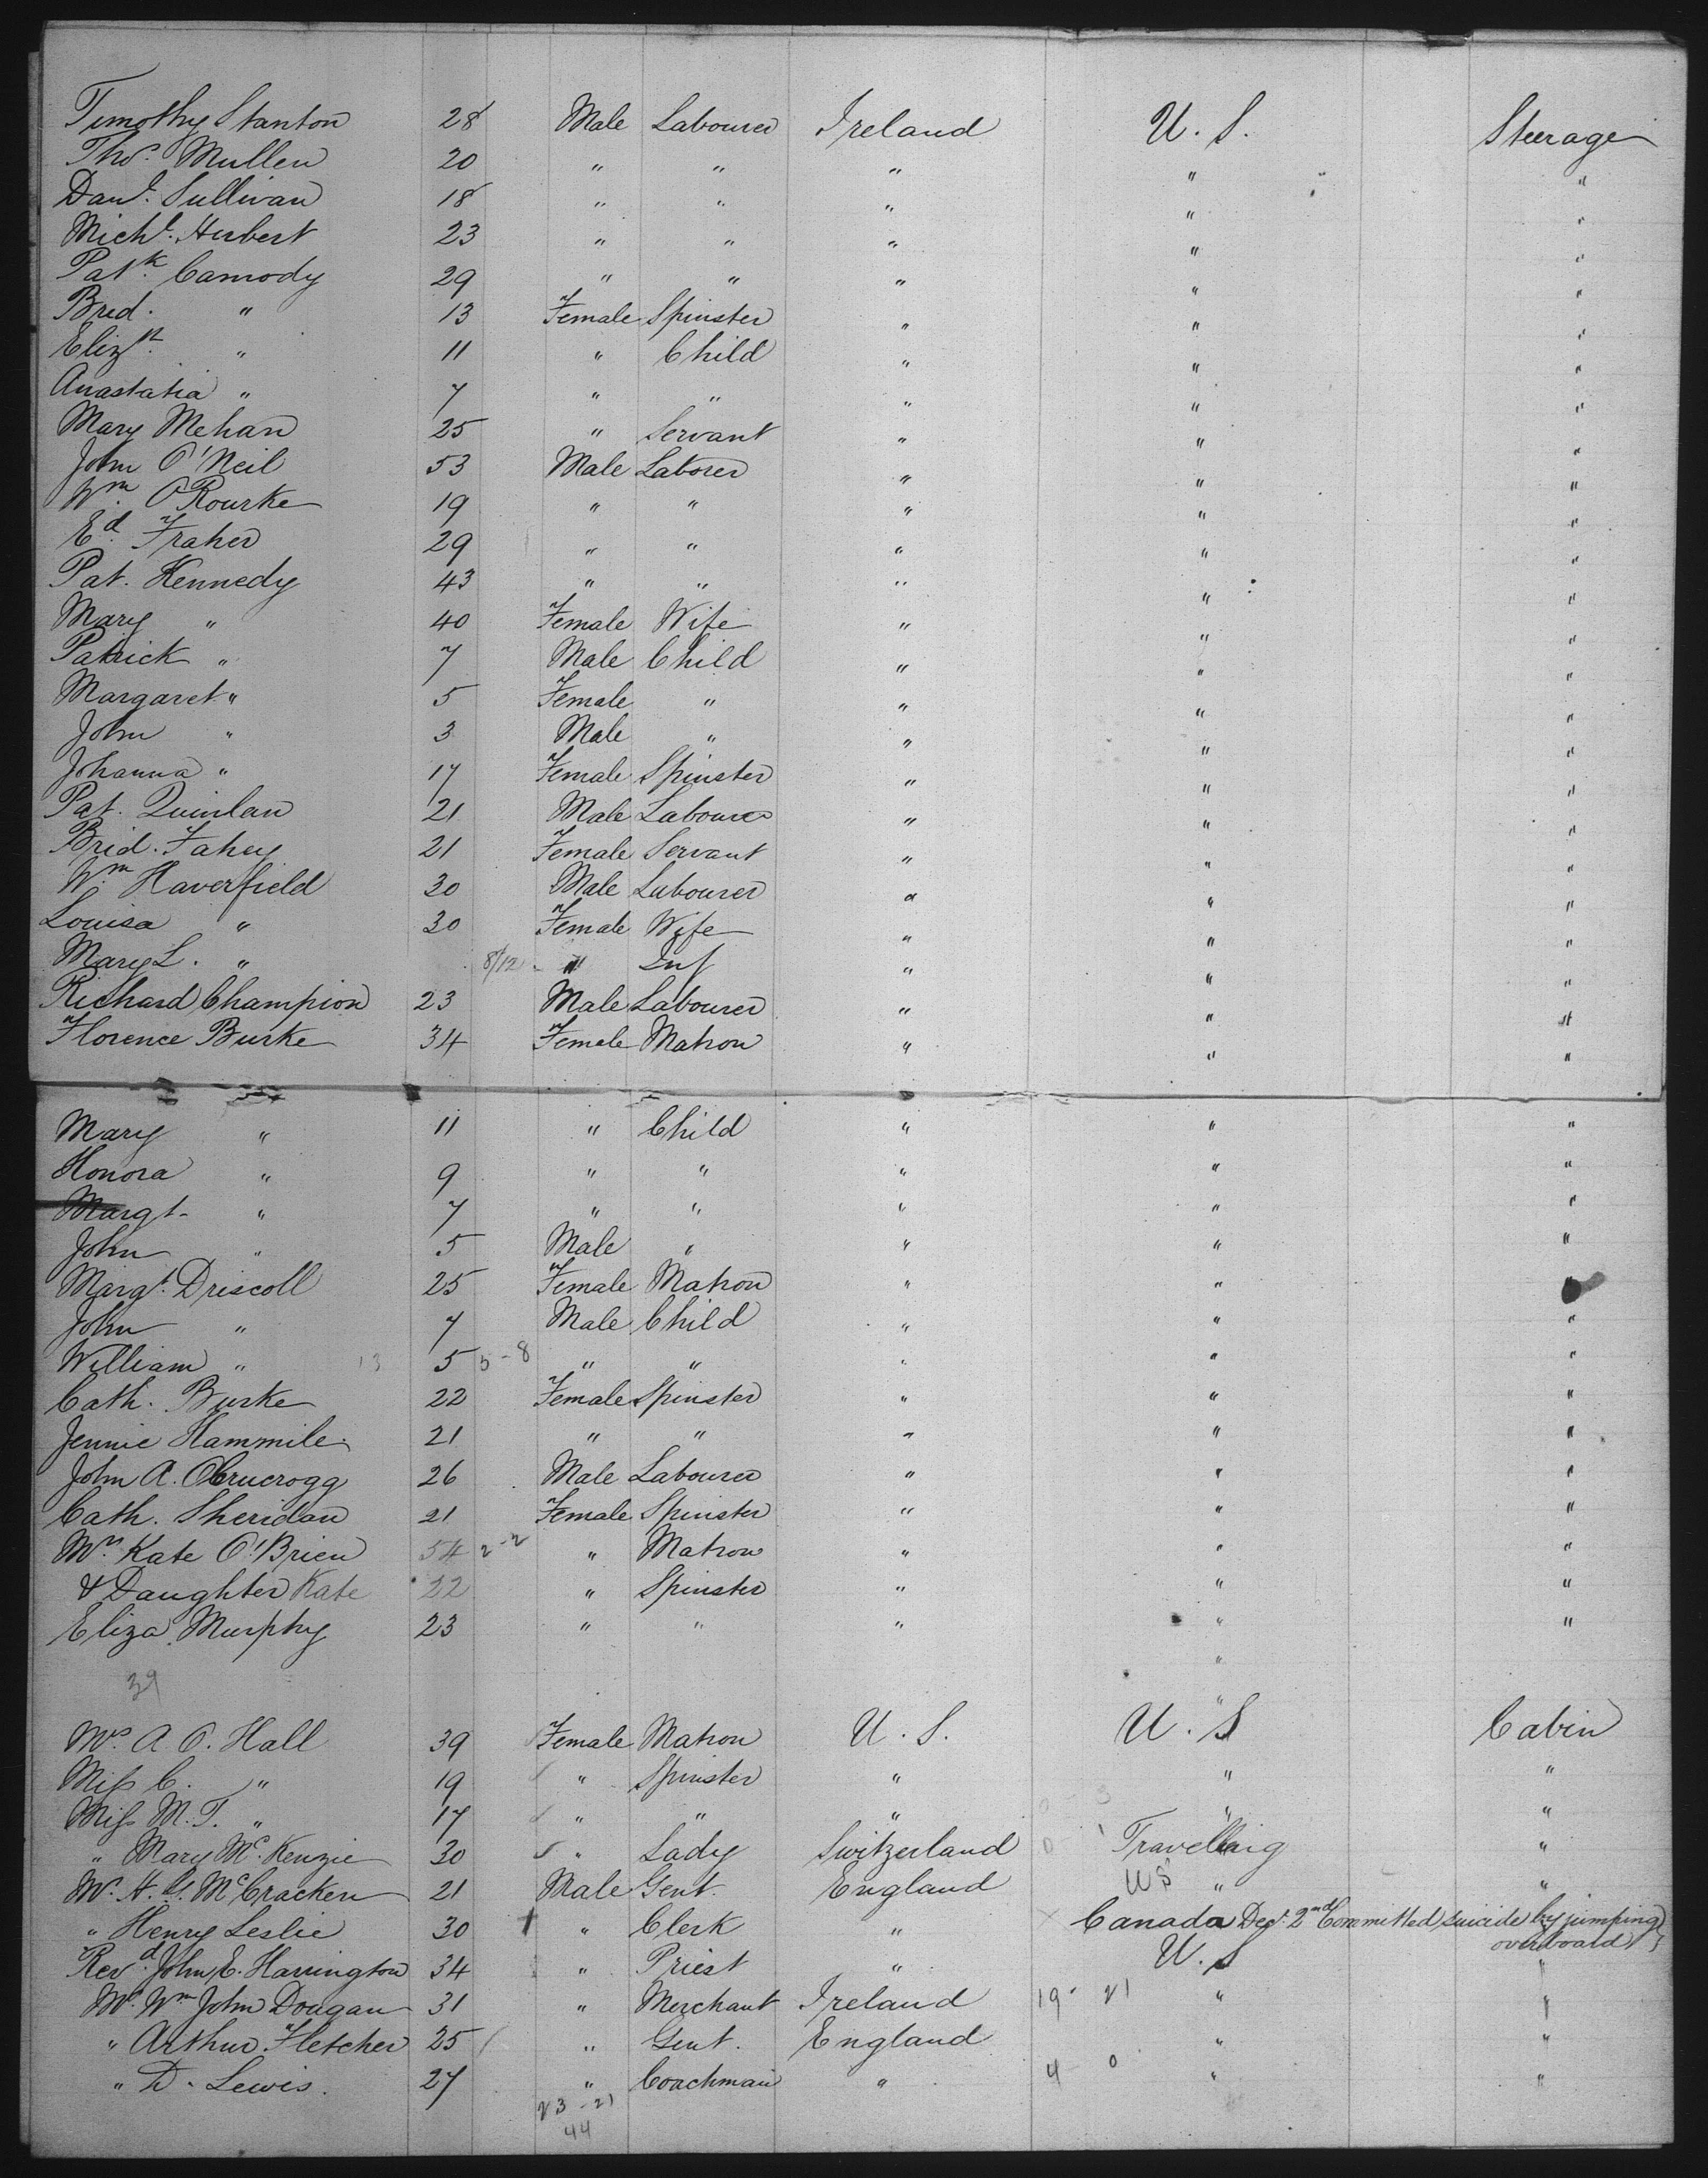 Timothy Stanton 28 Male Labourer Ireland U. S. Steerage
Thos. Mullen 20 " " " " "
Danl. Sullivan 18 " " " " "
Michl. Herbert 23 " " " " "
Patk. Camody 29 " " " " "
Brid. " 13 Female Spinster " " "
Elizh. " 11 " Child " " "
Anastatia " 7 " " " " "
Mary Mehan 25 " Servant " " "
John O'Neil 53 Male Laborer " " "
Wm. O'Rourke 19 " " " " "
Ed. Fraher 29 " " " " "
Pat. Kennedy 43 " " " " "
Mary " 40 Female Wife " " "
Patrick " 7 Male Child " " "
Margaret " 5 Female " " " "
John " 3 Male " " " "
Johanna " 17 Female Spinster " " "
Pat. Quinlan 21 Male Labourer " " "
Brid. Fahey 21 Female Servant " " "
Wm. Haverfield 30 Male Labourer " " "
Louisa " 30 Female Wife " " "
Mary L. " 8/12 " Inf " " "
Richard Champion 23 Male Labourer " " "
Florence Burke 34 Female Matron " " "
Mary " 11 " Child " " "
Honora " 9 " " " " "
Margt. " 7 " " " " "
John " 5 Male " " " "
Margt. Driscoll 25 Female Matron " "
John " 7 Male Child " " "
William " 13 5 5-8 " " " " "
Cath. Burke 22 Female Spinster " " "
Jennie Hammile. 21 " " " " "
John A. 26 Male Labourer " " "
Cath. Sheridan 21 Female Spinster " " "
Mrs. Kate O'Brien 54 2-2 " Matron " " "
& Daughter Kate 22 " Spinster " " "
Eliza Murphy 23 " " " " "
"
39 "
Mrs. A. O. Hall 39 Female Matron U. S. U. S Cabin
Miss C. " 19 " Spinster " " "
Miss M. T. " 17 " " " " "
" Mary McKenzie 30 " Lady Switzerland 0 - 1 Travelling "
Mr. H. G. McCracken 21 Male Gent. England US " "
" Henry Leslie 30 " Clerk " Canada Decr. 2nd Committed suicide by jumping
overboard }
Revd. John E. Harrington 34 " Priest " U. S "
Mr. Wm. John Dougan 31 " Merchant Ireland 19 - 21 " "
" Arthur Fletcher 25 " Gent. England " "
" D. Lewis. 27 " Coachman " 4 0 " "
23 - 21
44